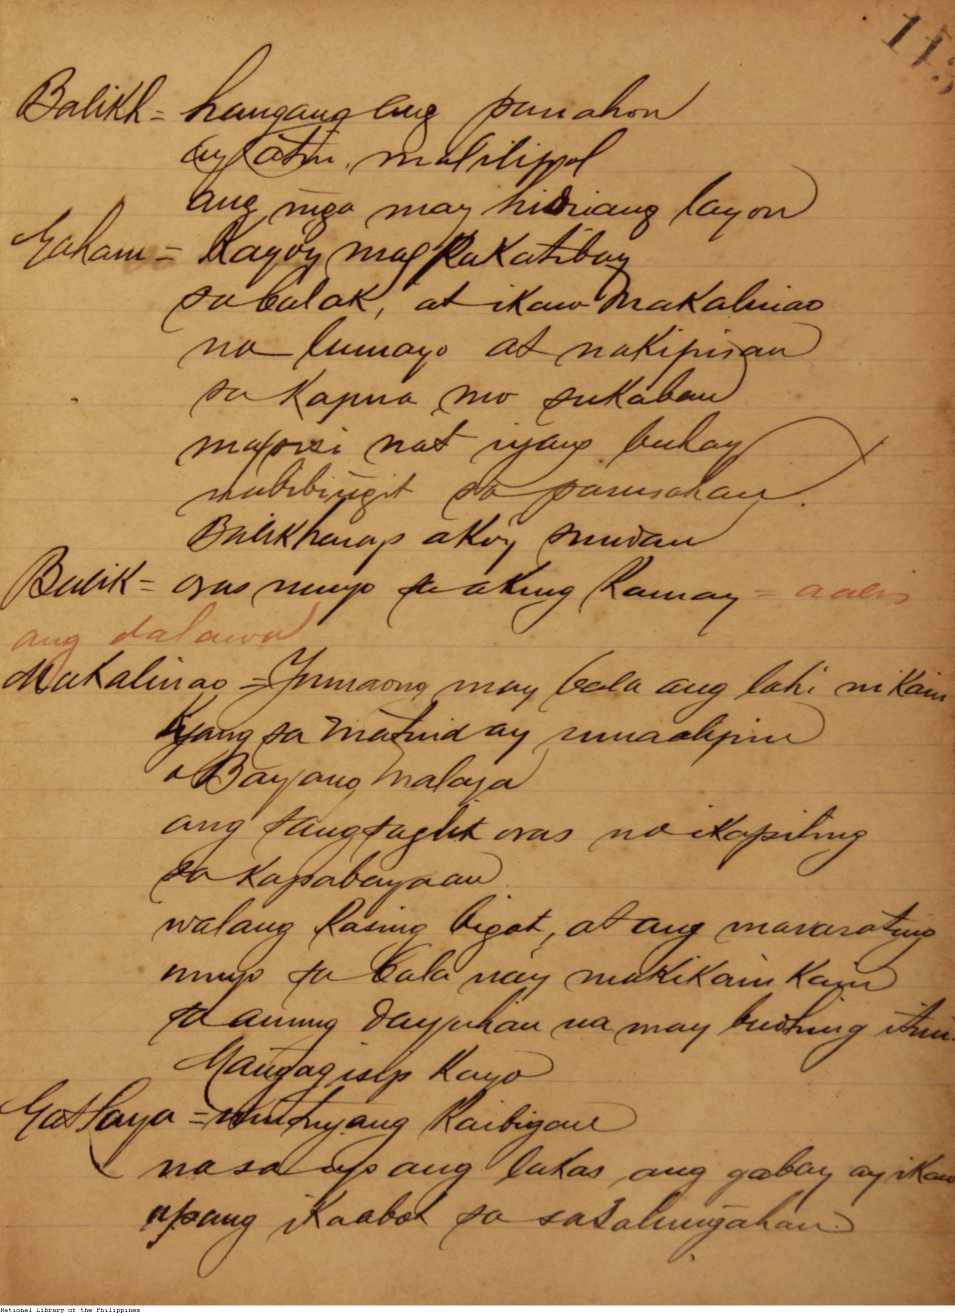 113
Balikh = hangang ang panahon
ay itim, malilippol
ang mga may hidiang layon
Gaham = Kayoy magpakatibay
sa balak, at ikaw Makalinao
na lumayo at nakipisan
sa Kapua mo sukaban
nat iyang buhay
nabibingit sa parusahan.
Balikharap akoy
Balik = oras ninyo sa aking Kamay = aalis
ang dalawa
Makalinao = may bala ang lahi ni Kain
Kyang sa matuid ay umaalipin
o Bayang Malaya
ang sangsaglit oras na ikapiling
sa kapabayaan
walang kasing bigat, at ang mararating
ninyo sa bala nay makikain kain
sa aming dayuhan na may budhing itim.
Mangagisip Kayo
Gatlaya = mutyang Kaibigan
nasa iyo ang lakas, ang gabay ay ikaw
upang ikaabot sa sasalungahan.
National Library of the Philippines